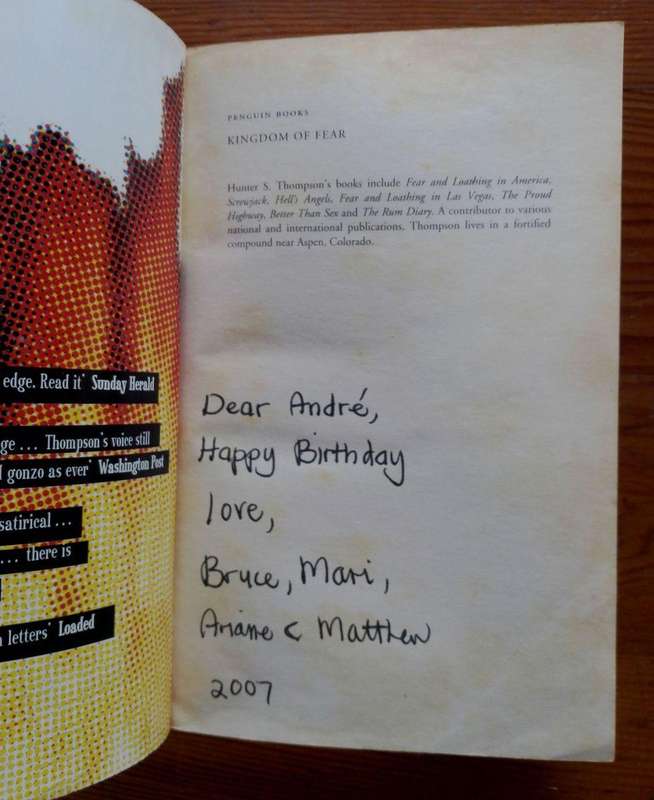 edge. Read it' Sunday Herald
ge ... Thompson's voice still
gonzo as ever' Washington Post
satirical ...
... there is
letters' Loaded
PENGUIN BOOKS
KINGDOM OF FEAR
Hunter S. Thompson's books include Fear and Loathing in America,
Screwjack, Hell's Angels, Fear and Loathing in Las Vegas, The Proud
Highway, Better Than Sex and The Rum Diary. A contributor to various
national and international publications, Thompson lives in a fortified
compound near Aspen, Colorado.
Dear André,
Happy Birthday
love,
Bruce, Mari,
Ariane & Matthew
2007